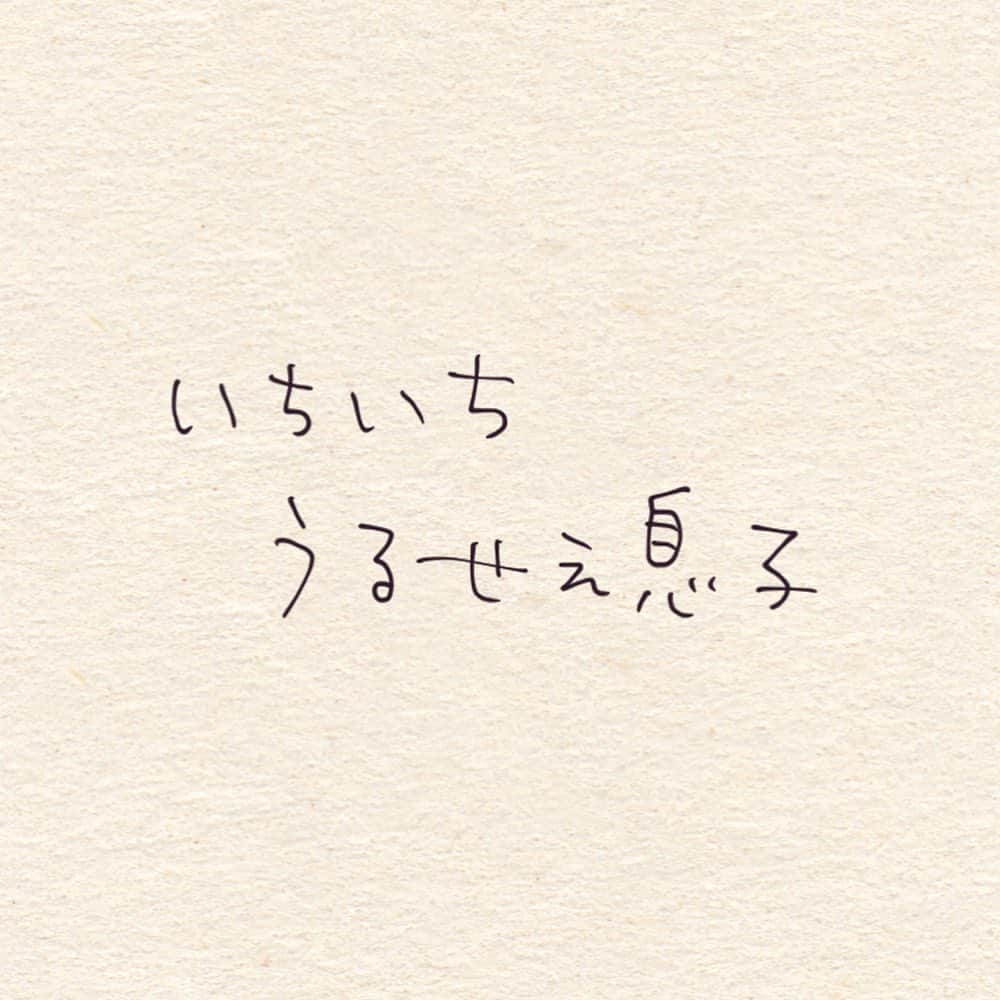 いちいち
うるせえ息子